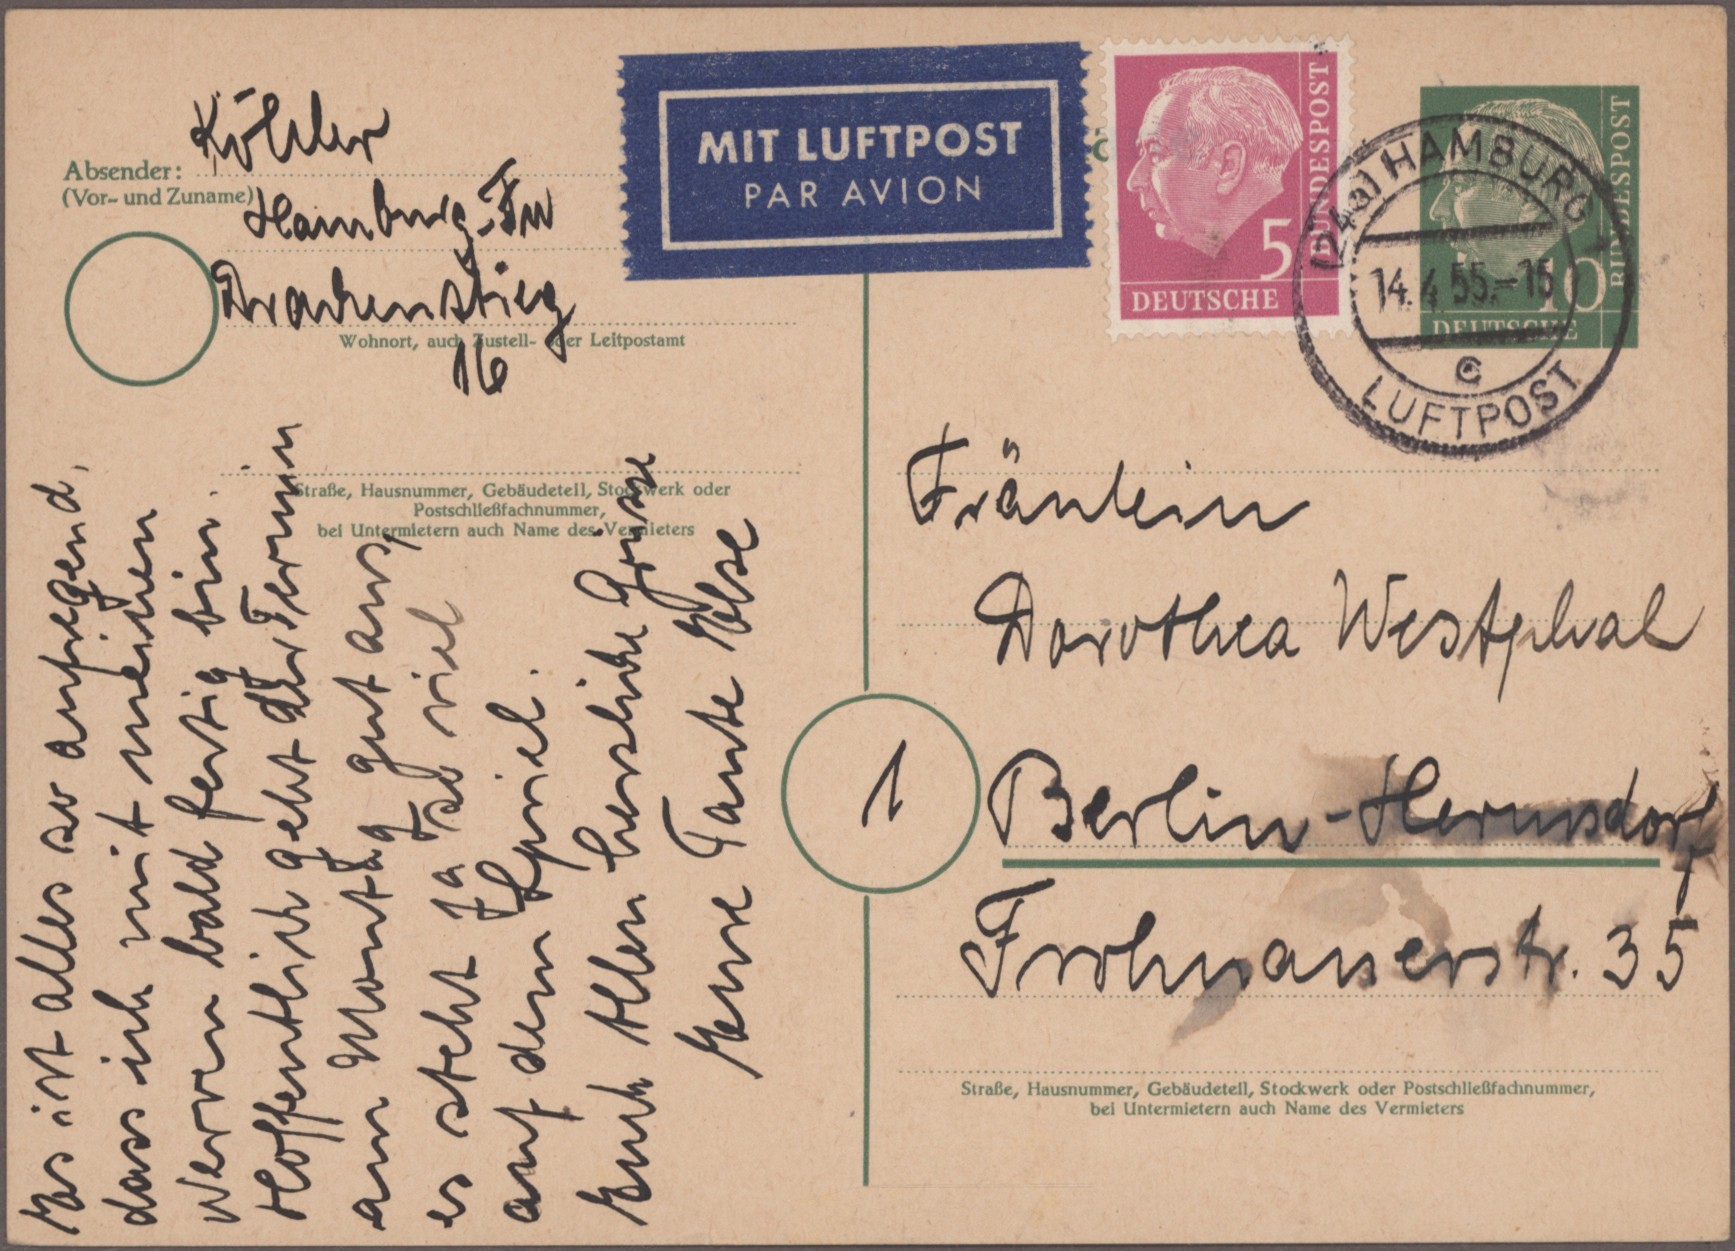 Köhler
Absender:
(Vor- und Zuname)
Hamburg-Fu
Drachenstieg
Wohnort, auch Zustell- oder Leitpostamt
16
Straße, Hausnummer, Gebäudeteil, Stockwerk oder
Postschließfachnummer,
bei Untermietern auch Name des Vermieters
MIT LUFTPOST
PAR AVION
5
DEUTSCHE
BUNDESPOST
10
DEUTSCHE
BUNDESPOST
(24a) HAMBURG
14.4.55.-15
c
LUFTPOST
Fräulein
Dorothea Westphal
1
Berlin-Hermsdorf
Frohnauerstr. 35
Straße, Hausnummer, Gebäudeteil, Stockwerk oder Postschließfachnummer,
bei Untermietern auch Name des Vermieters
Es ist alles so aufregend,
dass ich mit meinen
Nerven bald fertig bin.
Hoffentlich geht der Termin
am Montag gut aus,
es steht ja so viel
auf dem Spiel.
Euch Allen herzliche Grüsse
Eure Tante Else